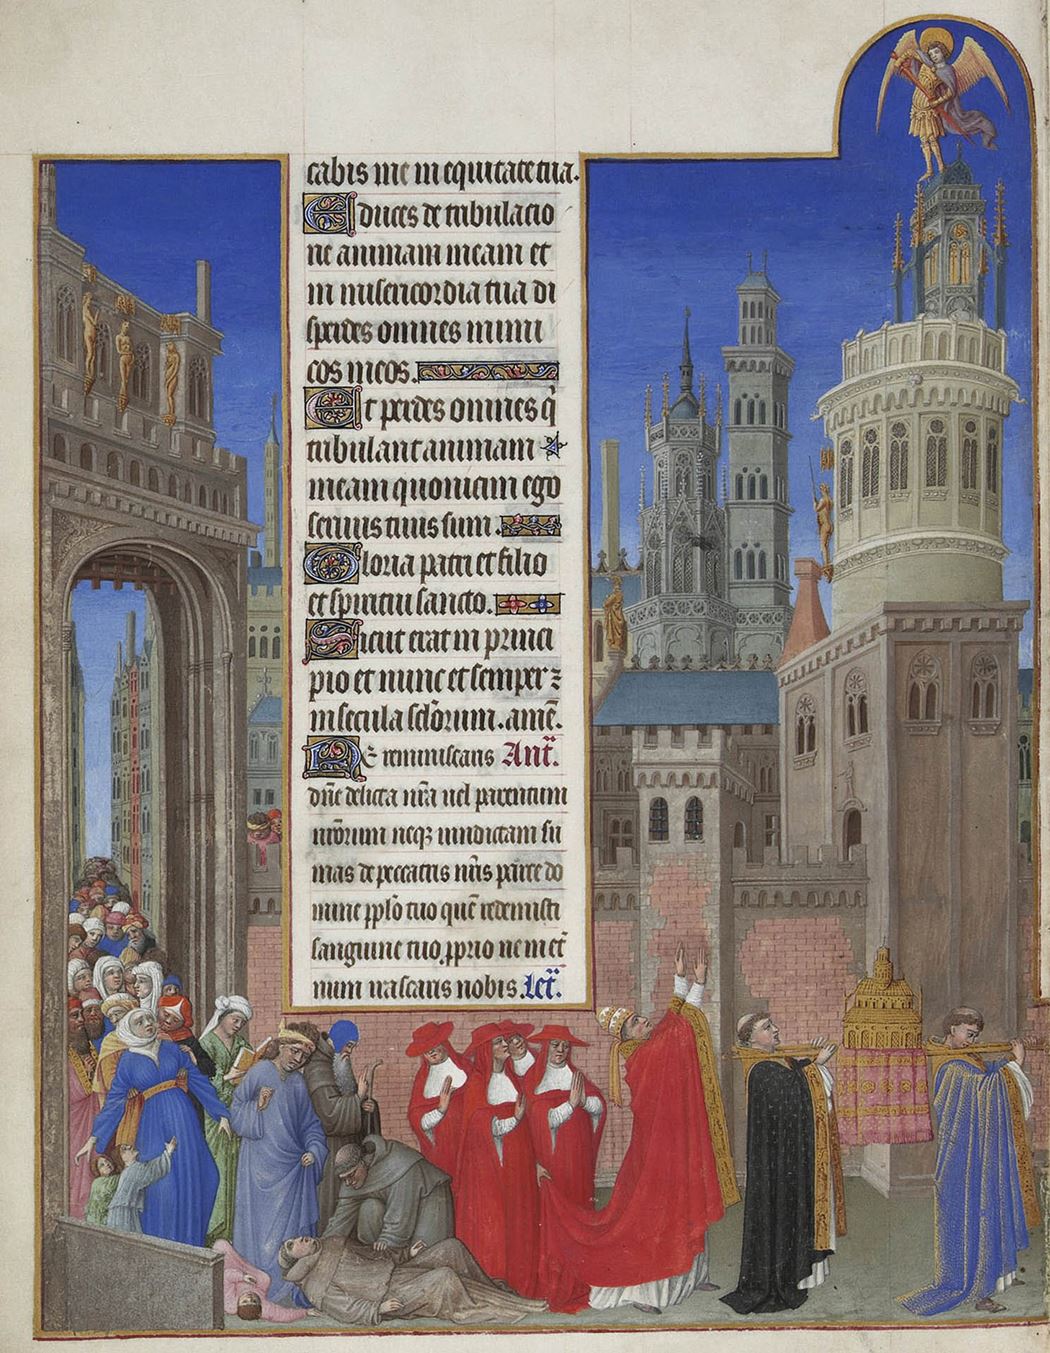 cabis me in equitate tua.
Educes de tribulatio
ne animam meam et
in misericordia tua di
sperdes omnes inimi
cos meos.
Et perdes omnes q̄
tribulant animam
meam quoniam ego
servus tuus sum.
Gloria patri et filio
et spiritui sancto.
Sicut erat in princi
pio et nunc et semper ⁊
in secula sclōrum. amē.
Ne reminiscaris Ant̄.
dn̄e delicta nr̄a vel parentum
nr̄orum neqꝫ vindictam su
mas de peccatis nr̄is parce do
mine pplo tuo quē redemisti
sanguine tuo pprio ne in et̄
num irascaris nobis. Let̄.